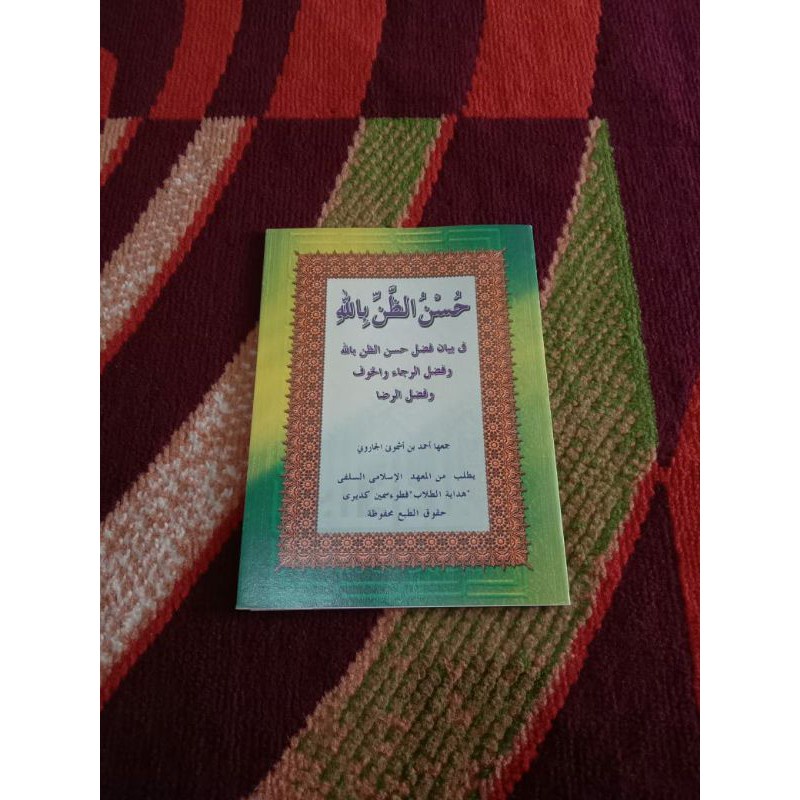 حُسْنُ الظَّنِّ بِاللهِ
فى بيان فضل حسن الظن بالله
وفضل الرجاء والخوف
وفضل الرضا
جمعها أحمد بن أسموني الجاروني
يطلب من المعهد الإسلامى السلفى
"هداية الطلاب" فطوءسمين كديرى
حقوق الطبع محفوظة